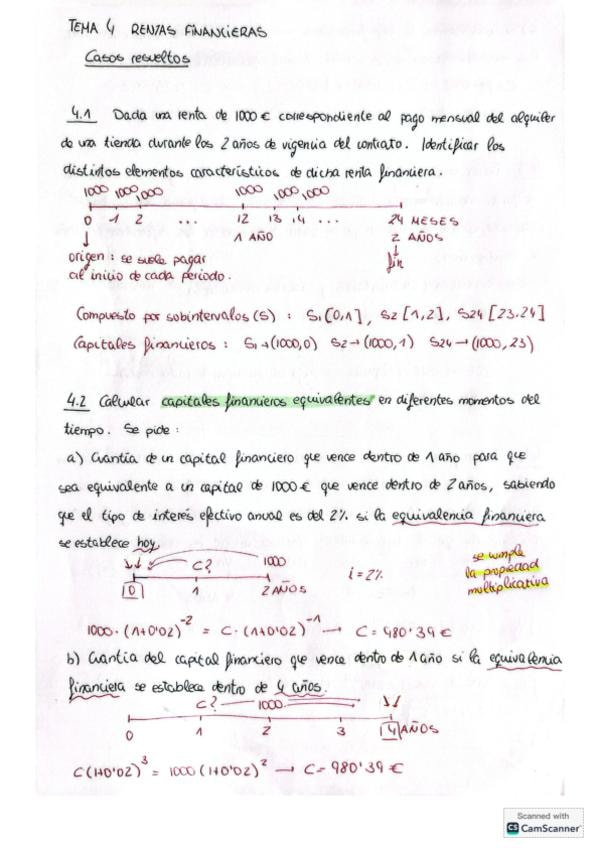 TEMA 4 RENTAS FINANCIERAS
Casos resueltos
4.1 Dada una renta de 1000 € correspondiente al pago mensual del alquiler
de una tienda durante los 2 años de vigencia del contrato. Identificar los
distintos elementos característicos de dicha renta financiera.
1000 1000 1000 1000 1000 1000
0 1 2 ... 12 13 14 ... 24 MESES
1 AÑO 2 AÑOS
origen: se suele pagar fin
al inicio de cada periodo.
Compuesto por subintervalos (S) : S1 [0,1] , S2 [1,2] , S24 [23,24]
Capitales financieros : S1→(1000,0) S2→(1000,1) S24→(1000,23)
4.2 Calcular capitales financieros equivalentes en diferentes momentos del
tiempo. Se pide :
a) Cuantía de un capital financiero que vence dentro de 1 año para que
sea equivalente a un capital de 1000 € que vence dentro de 2 años, sabiendo
que el tipo de interés efectivo anual es del 2% si la equivalencia financiera
se establece hoy
C? 1000
0 1 2 AÑOS
i = 2%
se cumple
la propiedad
multiplicativa
1000·(1+0'02)^-2 = C·(1+0'02)^-1 → C = 980'39 €
b) Cuantía del capital financiero que vence dentro de 1 año si la equivalencia
financiera se establece dentro de 4 años.
C? 1000
0 1 2 3 4 AÑOS
C(1+0'02)^3 = 1000(1+0'02)^2 → C = 980'39 €
Scanned with
CS CamScanner